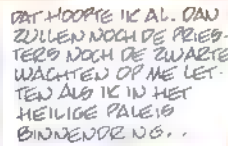 DAT HOOPTE IK AL. DAN
ZULLEN NOCH DE PRIES-
TERS NOCH DE ZWARTE
WACHTEN OP ME LET-
TEN ALS IK IN HET
HEILIGE PALEIS
BINNENDR NG..